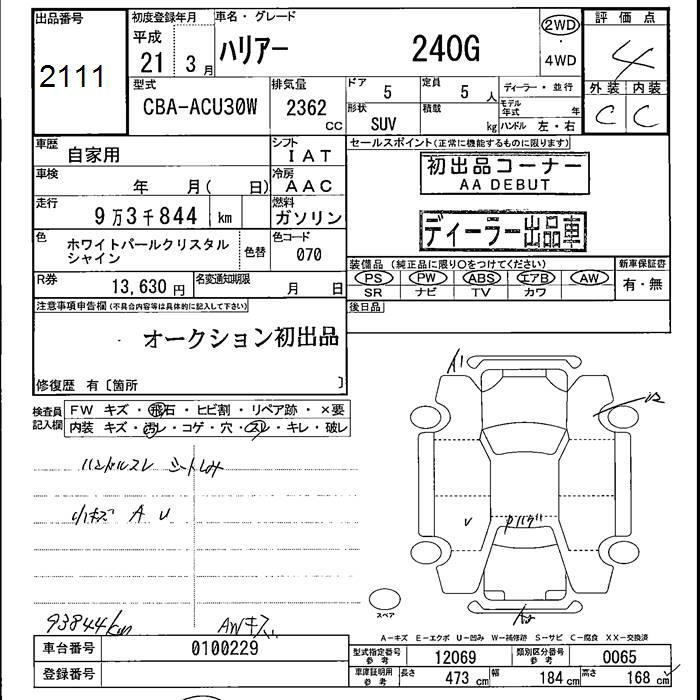 出品番号
2111
初度登録年月
平成
21 3 月
車名・グレード
ハリアー 240G
2WD
・
4WD
評価点
4
外装 内装
C C
型式
CBA-ACU30W
排気量
2362
cc
ドア
5
定員
5 人
形状
SUV
積載
kg
ディーラー・並行
モデル年式 年
ハンドル 左・右
車歴
自家用
シフト
IAT
車検
年 月( 日)
冷房
AAC
走行
9万3千844 km
燃料
ガソリン
色
ホワイトパールクリスタル
シャイン
色替
色コード
070
R券
13,630 円
名変通知期限
月 日
セールスポイント(正常に機能するものに限ります)
初出品コーナー
AA DEBUT
ディーラー出品車
装備品(純正品に限り○をつけてください)
新車保証書
PS PW ABS エアB AW
SR ナビ TV カワ
有・無
後日品
注意事項申告欄(不具合内容等は具体的に記入して下さい)
オークション初出品
修復歴 有〔箇所 〕
検査員
記入欄
FW キズ・飛石・ヒビ割・リペア跡・×要
内装 キズ・汚レ・コゲ・穴・スレ・キレ・破レ
ハンドルスレ シートしみ
小キズ A U
93844km
AWキズ
A1
V
スペア
A-キズ E-エクボ U-凹み W-補修跡 S-サビ C-腐食 XX-交換済
車台番号
0100229
登録番号
型式指定番号
参考
12069
類別区分番号
参考
0065
車庫証明用
参考
長さ 473 cm 幅 184 cm 高さ 168 cm